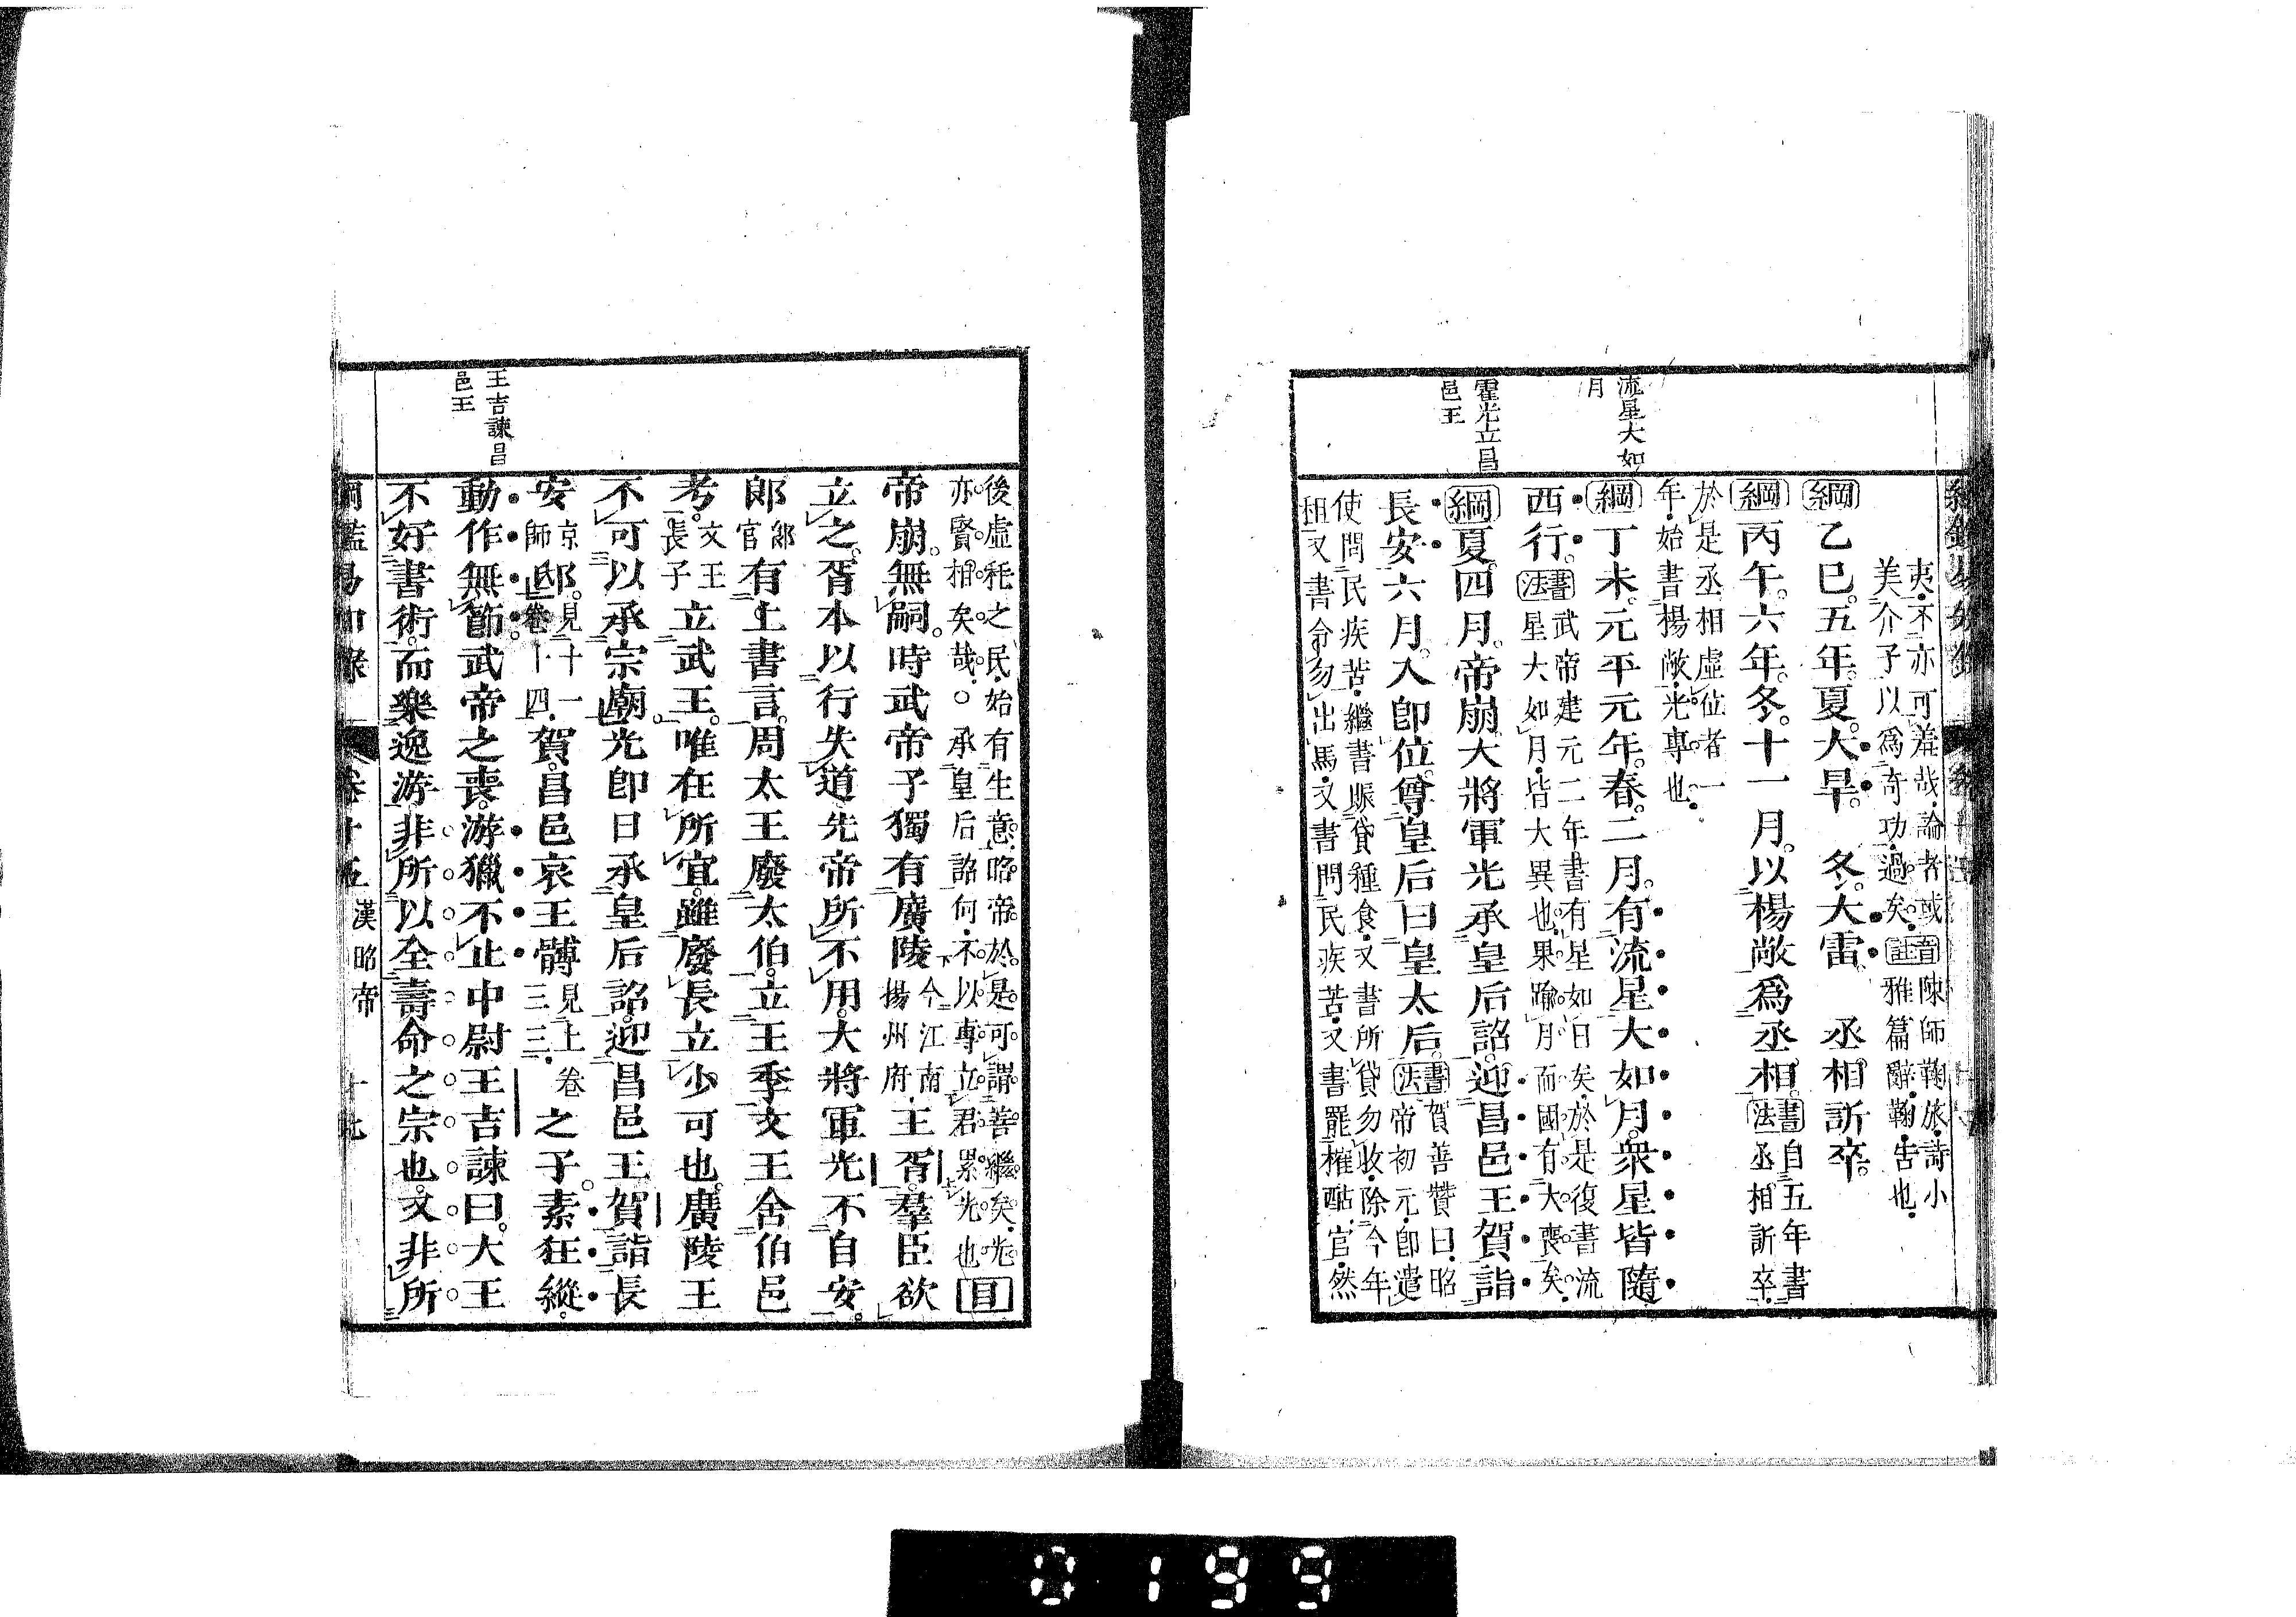 流星大如
月
霍光立昌
邑王
夷不亦可羞哉論者或音陳師鞠旅詩小
美介子以爲奇功過矣註雅篇辭鞠告也
綱乙巳五年夏大旱 冬大雷 丞相訢卒
綱丙午六年冬十一月以楊敞爲丞相書自五年書
法丞相訢卒
於是丞相虛位者一
年始書楊敞光專也
綱丁未元平元年春二月有流星大如月衆星皆隨
西行書武帝建元二年書有星如日矣於是復書流
法星大如月皆大異也果踰月而國有大喪矣
綱夏四月帝崩大將軍光承皇后詔迎昌邑王賀詣
長安六月入卽位尊皇后曰皇太后書賀善贊曰昭
法帝初元卽遣
使問民疾苦繼書賑貸種食又書所貸勿收除今年
租又書令勿出馬又書問民疾苦又書罷榷酤官然
王吉諫昌
邑王
後虛秏之民始有生意昭帝於是可謂善繼矣光
亦賢相矣哉○承皇后詔何不以專立君累光也目
帝崩無嗣時武帝子獨有廣陵今江南
揚州府王胥羣臣欲
立之胥本以行失道先帝所不用大將軍光不自安
郞郞
官有上書言周太王廢太伯立王季文王舍伯邑
考文王
長子立武王唯在所宜雖廢長立少可也廣陵王
不可以承宗廟光卽日承皇后詔迎昌邑王賀詣長
安京
師邸見十一
卷十四賀昌邑哀王髆見上卷
三三之子素狂縱
動作無節武帝之喪游獵不止中尉王吉諫曰大王
不好書術而樂逸游非所以全壽命之宗也又非所
綱鑑易知錄 卷十五 漢昭帝
0199